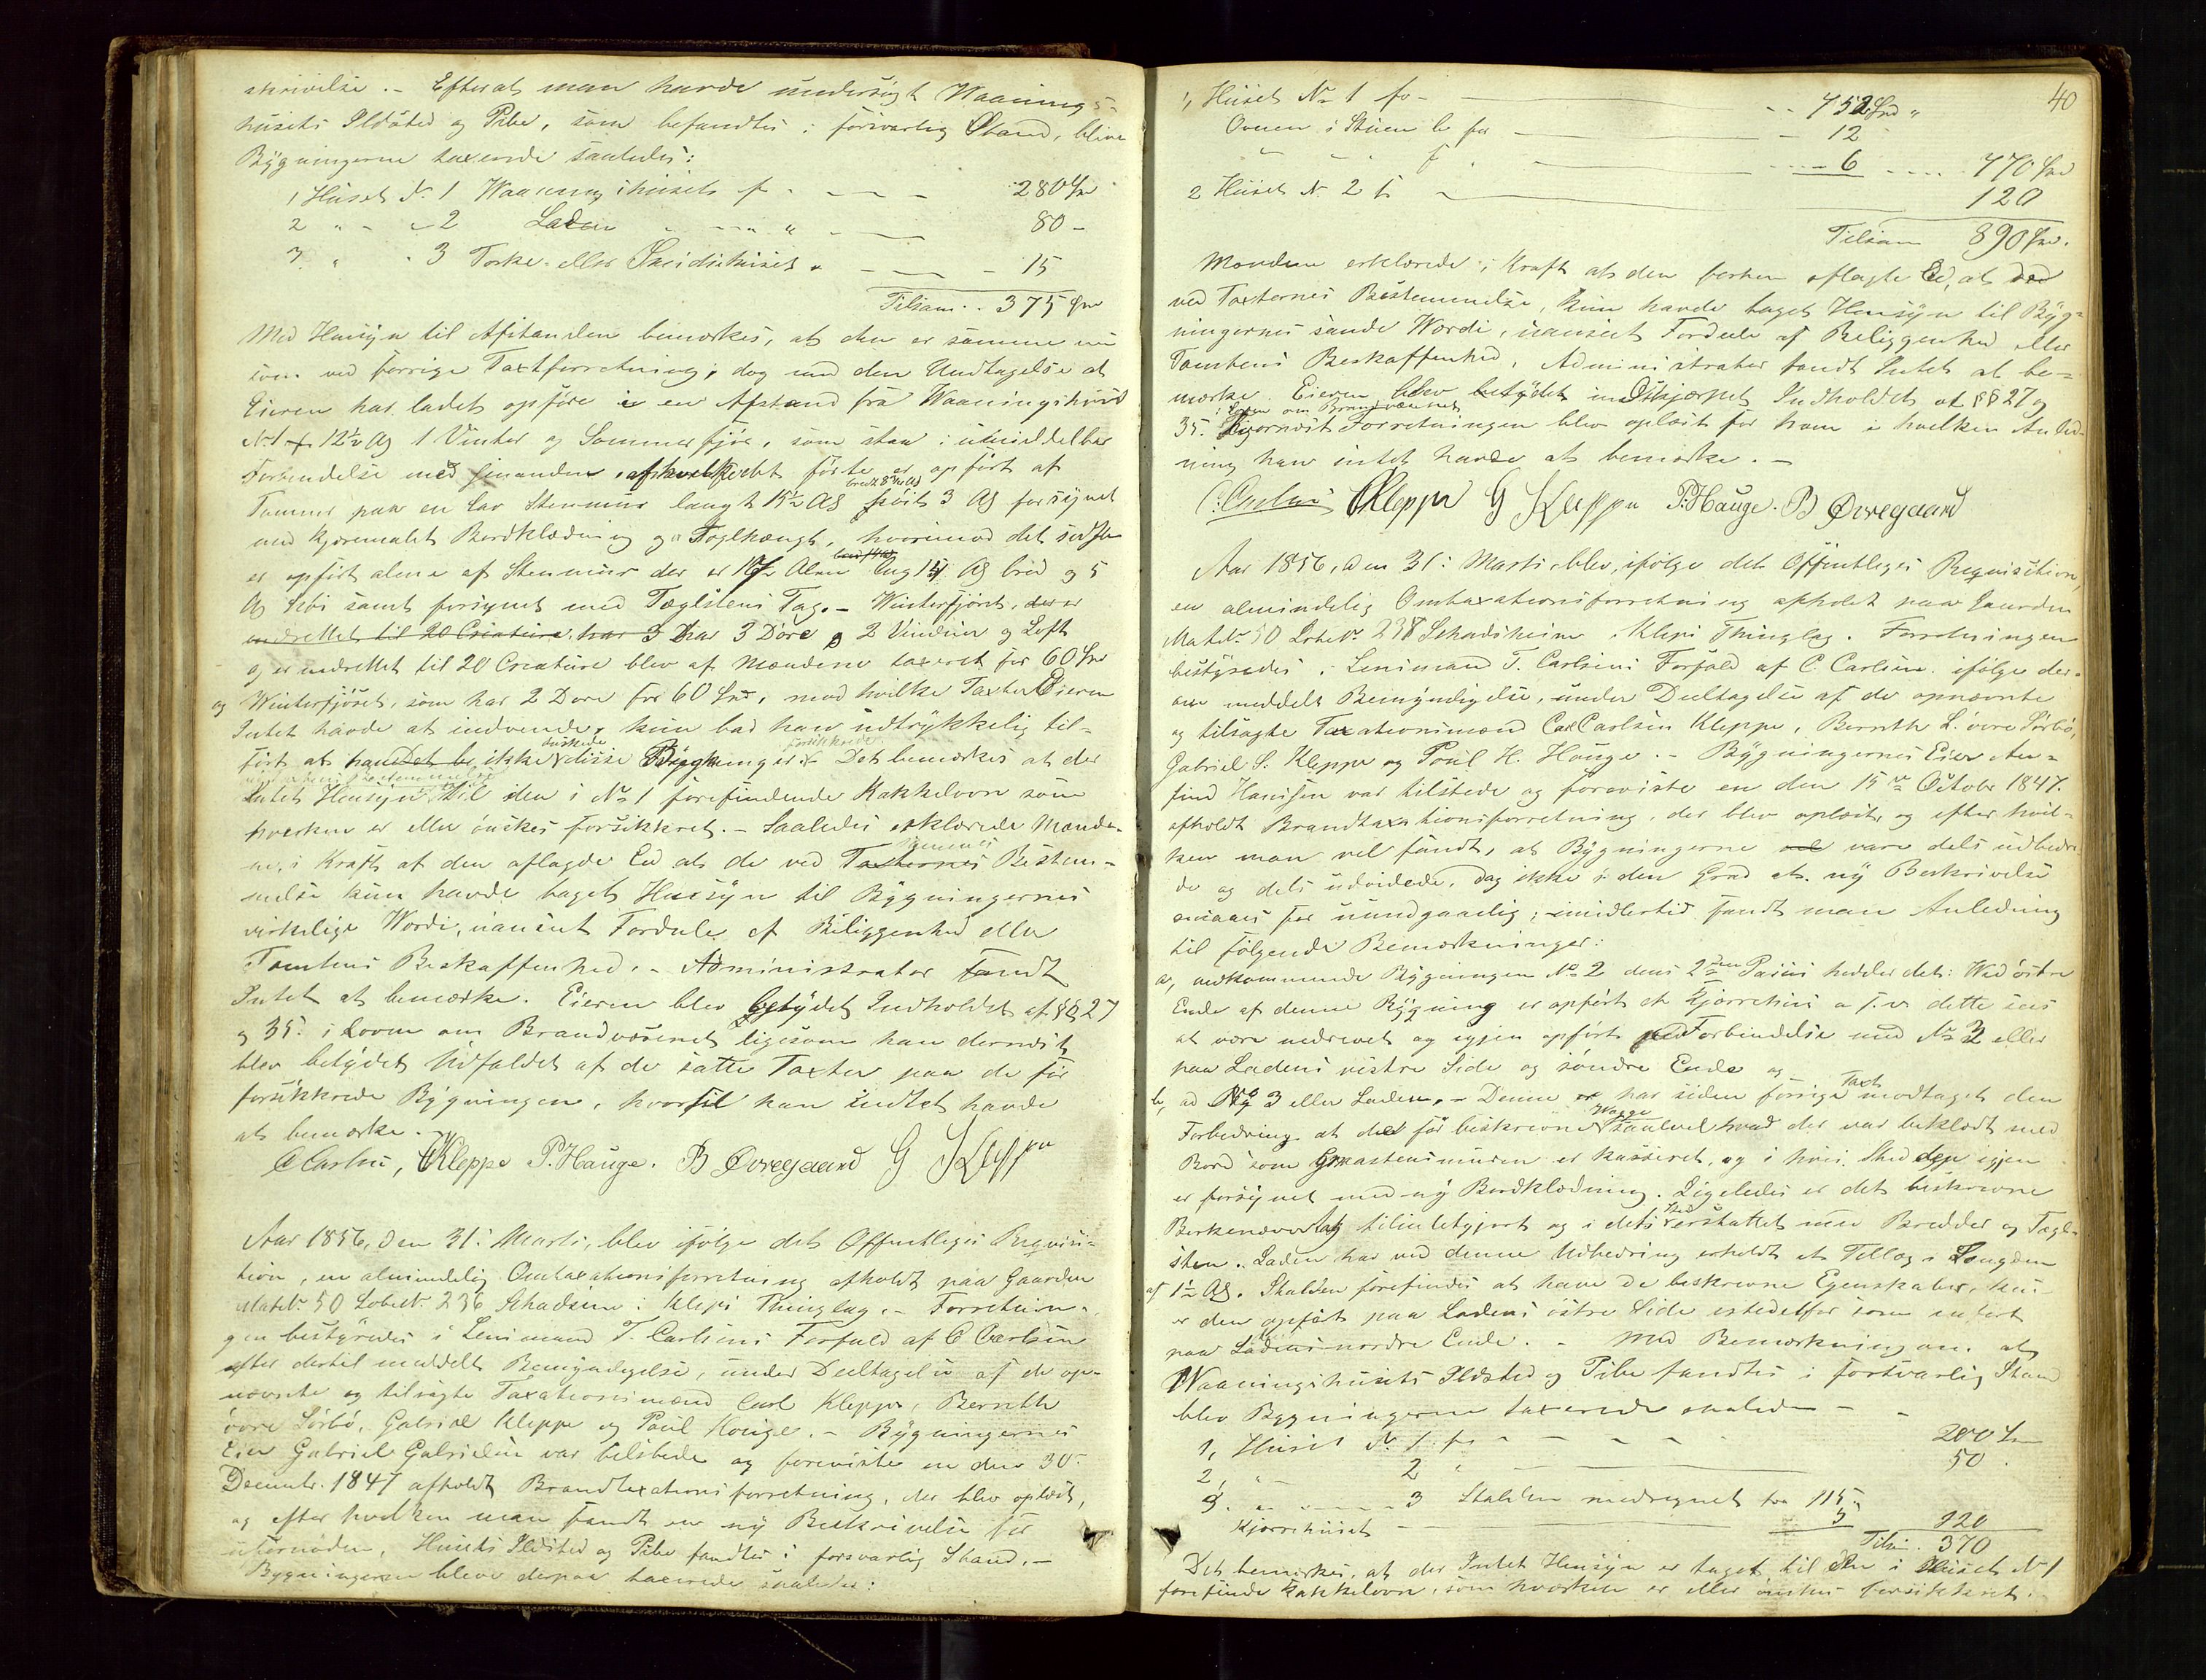 skrivelse. – Efterat man havde undersögt Waanings-
husets Ildsted og Pibe, som befandtes i forsvarlig Stand, blive
Bÿgningerne taxerede saaledes:
1 Huset No 1 Waaningshuset for – – – 280 Spd
2 " – " 2 Laden " – – " " – 80 –
3 " " 3 Torke- eller Smidiehuset " – – – 15
Tilsam. . 375 Spd
Med Hensÿn til Afstanden bemærkes, at den er samme nu
som ved forrige Taxtforretning, dog med den Undtagelse at
Eieren har ladet opföre i en Afstand fra Waaningshuset
No 1 12½ Al 1 Vinter og Sommerfjös, som staa i umiddelbar
Forbindelse med hinanden, det förste er opfört af
Tömmer paa en lav Steenmuur langt 15½ Al bredt 8 Al höit 3 Al forsÿnet
med Bordklædning og Taglhængt, hvorimod det sidste
er opfört alene af Steenmuur der er Alen lang Al bred og 5
Al höi samt forsÿnet med Tæglsteens Tag. – Winterfjöset, der er
indrettet til 20 Creature, har 3 har 3 Döre, 2 Vinduer og Loft
og er indrettet til 20 Creature blev af Mændene taxeret for 60 Spd
og Winterfjöset, som har 2 Döre for 60 Spd, mod hvilke Taxter Eieren
Intet havde at indvende, kun bad han udtrÿkkelig til-
fört at han ikke önskede disse Bÿgninger forsikkrede. Det bemærkes at der
Intet Hensÿn til den i No 1 forefindende Kakkelovn som
hverken er eller önskes forsikkret. – Saaledes erklærede Mænde-
ne, i Kraft af den aflagde Eed at de ved Taxternes Bestem-
melse kun havde taget Hensÿn til Bÿgningernes
virkelige Wærdi, uanseet Fordele af Beliggenhed eller
Tomtens Beskaffenhed. – Administrator fandt
Intet at bemærke. Eieren blev betÿdet Indholdet af §§ 27
og 35 i Loven om Brandvæsenet ligesom han dernæst
blev betÿdet Udfaldet af de satte Taxter paa de för
forsikkrede Bÿgninger, hvortil han Intet havde
at bemærke. –
C Carlsen, CKleppe P. Hauge. B Øvregaard G S Kleppe
Aar 1856, den 31: Marti, blev ifölge det Offentliges Requisi-
tion, en almindelig Omtaxationsforretning afholdt paa Gaarden
Matr No 50 Löbe No 236 Schadsem i Klepps Thinglag. – Forretnin-
gen bestÿredes i Lensmand T. Carlsens Forfald af C Carlsen
efter dertil meddelt Bemÿndigelse, under Deeltagelse af de op-
nævnte og tilsagte Taxationsmænd Carl Kleppe, Bernth
övre Sörbö, Gabriel Kleppe og Poul Houge. – Bÿgningernes
Eier Gabriel Gabrielsen var tilstede og foreviste en den 30
Decembr. 1847 afholdt Brandtaxationsforretning, der blev oplæst,
og efter hvilken man fandt en nÿ Beskrivelse for
ufornöden, Husets Ildsted og Pibe fandtes i forsvarlig Stand. –
Bygningerne bleve derpaa taxerede saaledes:
40
1, Huset No 1 for – – – 752 Spd "
Ovnen i Stuen b for – – 12
" " " f " – – – 6 .... 770 Spd
2 Huset No 2 for – 120
Tilsam 890 Spd.
Mændene erklærede i Kraft af den forhen aflagte Eed, at de
ved Taxternes Bestemmelse, kun havde taget Hensÿn til Bÿg-
ningernes sande Wærdi, uanseet Fordele af Beliggenhed eller
Tomtens Beskaffenhed. Administrator fandt Intet at be-
mærke. Eieren blev betÿdet Indholdet af §§ 27 og
35 i Loven om Brandvæsenet. Hvornæst Forretningen blev oplæst for ham i hvilken Anled-
ning han intet havde at bemærke. –
C: Carlsen CKleppe G S Kleppe P. Hauge. B Øvregaard
Aar 1856, den 31: Marti blev, ifölge det Offentliges Requisition,
en almindelig Omtaxationsforretning afholdt paa Gaarden
Matr No 50 Löbe No 238 Schadsheim i Klepps Thinglag. Forretningen
bestÿredes i Lensmand T. Carlsens Forfald af C. Carlsen ifölge der-
om meddelt Bemÿndigelse, under Deeltagelse af de opnævnte
og tilsagte Taxationsmænd Carl Carlsen Kleppe, Bernth L. övre Sörbö,
Gabriel S. Kleppe og Poul H. Houge. – Bÿgningernes Eier Aan-
find Hansen var tilstede og foreviste en den 15de October 1847
afholdt Brandtaxationsforretning, der blev oplæst, og efter hvil-
ken man vel fandt, at Bÿgningerne vel vare dels udbedre-
de og dels udvidede, dog ikke i den Grad at nÿ Beskrivelse
ansaaes for uundgaaelig; imidlertid fandt man Anledning
til fölgende Bemærkninger:
a, vedkommende Bÿgningen No 2 dens 2den Passus hedder det: Wed östre
Ende af denne Bÿgning er opfört et Kjørrehus o. s. v. dette sees
at være nedrevet og igjen opfört i Forbindelse med No 3 eller
paa Ladens vestre Side og söndre Ende og
b, ad No 3 eller Laden. – Denne har siden forrige Taxt modtaget den
Forbedring at de för beskrevne Vægge saavel hvad der var beklædt med
Bord som Graasteensmuren er kasseret, og i hvis Sted den igjen
er forsÿnet med nÿ Bordklædning. Ligeledes er det beskrevne
Birkenæver Tag tilintetgjort og i dets Sted erstattet med Brædder og Tægl-
steen. Laden har ved denne Udbedring erholdt et Tillæg i Længden
af 1½ Al. Stalden forefindes at have de beskrevne Egenskaber, kun
er den opfört paa Ladens östre Side istedetfor som anfört
paa Ladens nordre Ende. – Med Bemærkning om at
Waaningshusets Ildsted og Pibe fandtes i forsvarlig Stand
blev Bygningerne taxerede saaledes –
1, Huset No 1 for – – – – 200 Spd
2, " – 2 " – 50 "
3. " – – – 3 Stalden medregnet for 115 "
Kjørrehuset – 5 120
Tilsm. 370
Det bemærkes, at der Intet Hensÿn er taget til den i Huset No 1
forefindende Kakkelovn, som hverken er eller önskes forsikkret.